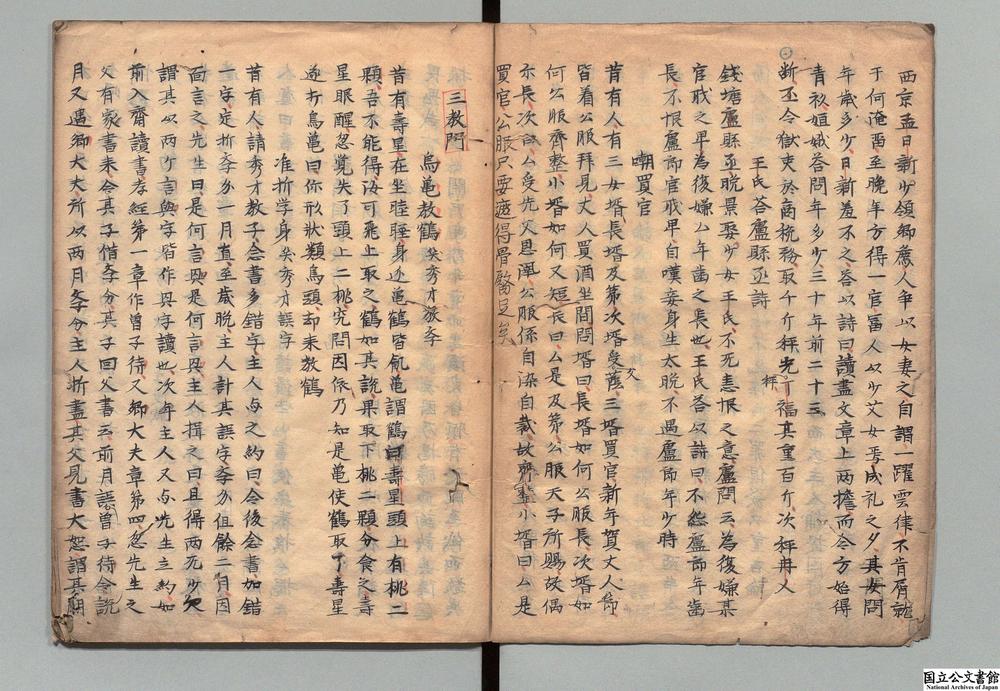 西京孟日新少領鄉薦人爭以女妻之自謂一躍雲衢不肯屑就
于何淹留至晚年方得一官冨人以少艾女焉成礼之夕其女問
年歲多少日新羞不之答以詩曰讀盡文章上両擔而今方始得
青衫姮娥若問年多少三十年前二十三
断丞令獄吏於商稅務取斤秤先福其重百斤次秤冉人
秤
王氏答盧縣丞詩
錢塘盧縣丞晚景娶少女王氏不死恚恨之意盧問云為復嫌某
官戝之卑為復嫌厶年齒之長也王氏答以詩曰不怨盧郎年齒
長不恨盧郎官戝卑自嘆妾身生太晚不遇盧郎年少時
嘲買官
昔有人有三女壻長壻及第次壻受蔭三壻買官新年賀丈人節
父
皆着公服拜見丈人買酒坐間問壻曰長壻如何公服長次壻如
何公服齊整小壻如何又短長曰厶是及第公服天子所賜故偶
尓長次曰厶受先父恩廕公服係自染自裁故齊整小壻曰厶是
買官公服只要遮得骨臀足矣
三教門
烏龜教鶴 笑秀才放斈
昔有壽星在坐睦睡身边龜鶴皆飢龜謂鶴曰壽星頭上有桃二
顆吾不能得汝可飛上取之鶴如其說果取下桃二顆分食之壽
星眼醒忽覚失了頭上二桃究問因依乃知是龜使鶴取了壽星
遂打烏龜曰你形狀類烏頭却来教鶴
准折学身 笑秀才誤字
昔有人請秀才教子念書多錯字主人与之約曰今後念書如錯
一字定折斈分一月直至歲晚主人計其誤字斈分但餘二月因
而言之先生曰是何言歟是何言歟主人揖之曰且得両先少欠
謂其以両个言與字皆作歟字讀也次年主人又与先生立約如
前入齋讀書孝經第一章作曾子待又鄉大夫章第四忽先生之
父有家書来令其子借斈分其子回父書云前月誤曾子待今說
月又遇鄉大夫所以両月斈分主人折盡其父見書大怒謂其
国立公文書館
National Archives of Japan